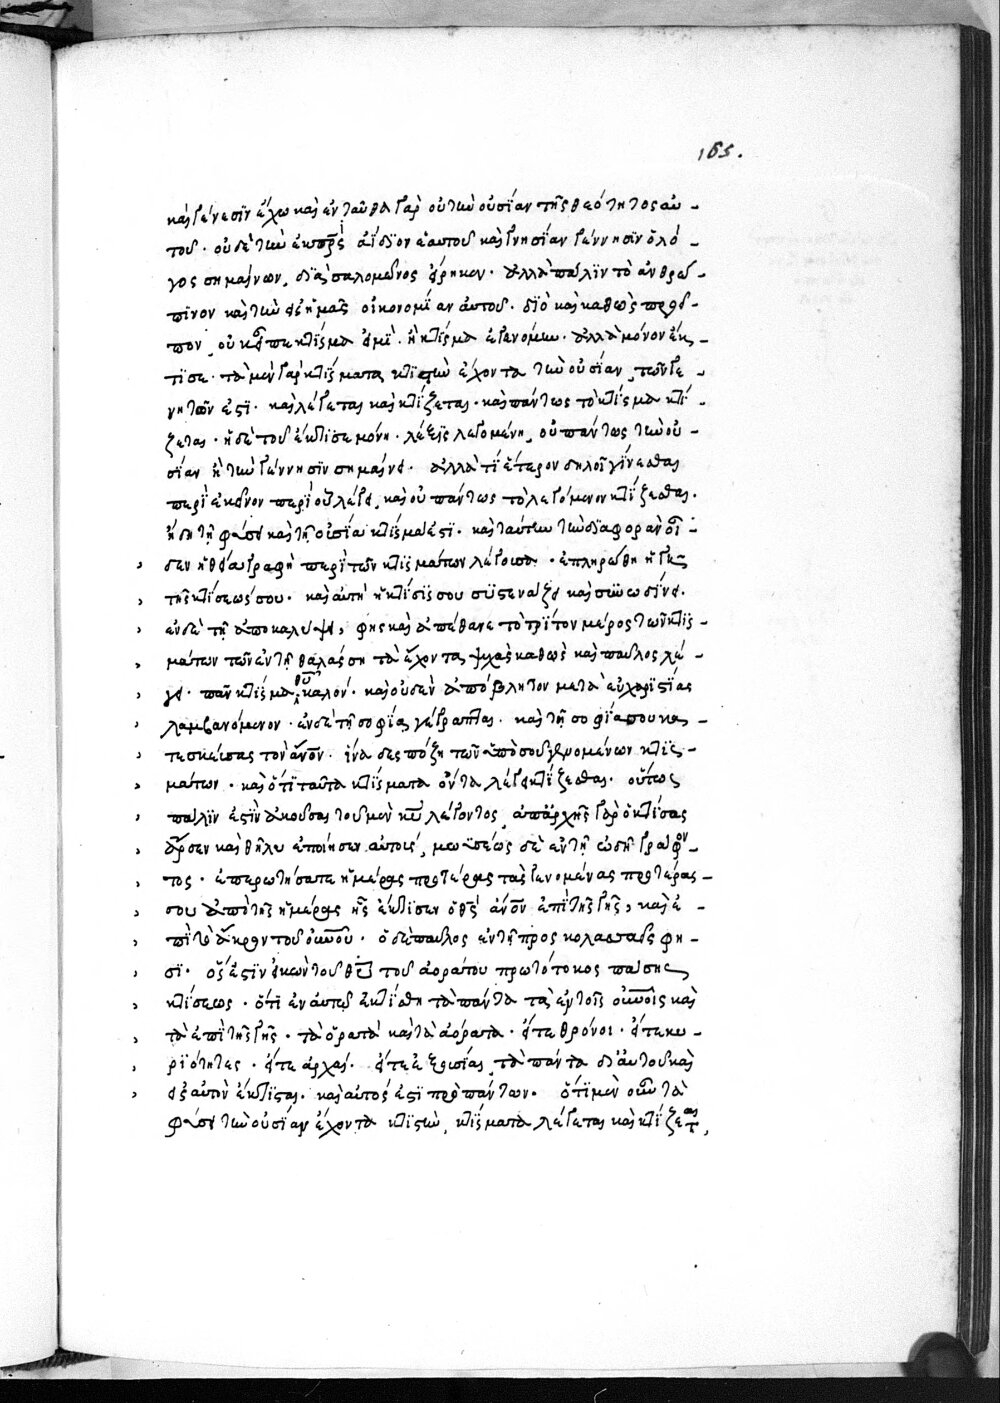 165.
καὶ γένεσιν ἔχω καὶ ἐνταῦθα γὰρ οὐ τὴν οὐσίαν τῆς θεότητος αὐ-
τοῦ· οὐδὲ τὴν ἐκ πρς ἀΐδιον ἑαυτοῦ καὶ γνησίαν γέννησιν ὁ λό-
γος σημαίνων, διὰ σαλομῶνος εἴρηκεν· ἀλλὰ πάλιν τὸ ἀνθρώ-
πινον καὶ τὴν εἰς ἡμᾶς οἰκονομίαν αὐτοῦ· διὸ καὶ καθὼς προεῖ-
πον, οὐκ εἶπε κτίσμα εἰμὶ· ἢ κτίσμα ἐγενόμην· ἀλλὰ μόνον ἔκ-
τισε· τὰ μὲν γὰρ κτίσματα κτιστὴν ἔχοντα τὴν οὐσίαν, τῶν γε-
νητῶν ἐστὶ· καὶ λέγεται καὶ κτίζεται· καὶ πάντως τὸ κτίσμα κτί-
ζεται· ἡ δὲ τοῦ ἔκτισε μόνη· λέξις λεγομένη, οὐ πάντως τὴν οὐ-
σίαν ἢ τὴν γέννησιν σημαίνει· ἀλλὰ τὶ ἕτερον δηλοῖ γίνεσθαι
περὶ ἐκεῖνον περὶ οὗ λέγει, καὶ οὐ πάντως τὸ λεγόμενον κτίζεσθαι·
ἤδη τῇ φύσει καὶ τῇ οὐσίᾳ κτίσμα ἐστὶ· καὶ ταύτην τὴν διαφορὰν οἶ-
δεν ἡ θεία γραφὴ περὶ τῶν κτισμάτων λέγουσα· ἐπληρώθη ἡ γῆ
τῆς κτίσεώς σου· καὶ αὐτὴ ἡ κτίσις συστενάζει καὶ συνωδίνει·
ἐν δὲ τῇ ἀποκαλύψει, φησὶ καὶ ἀπέθανε τὸ τρίτον μέρος τῶν κτισ-
μάτων τῶν ἐν τῇ θαλάσσῃ τὰ ἔχοντα ψυχὰς καθὼς καὶ παῦλος λέ-
γει· πᾶν κτίσμα θυ καλόν· καὶ οὐδὲν ἀπόβλητον μετὰ εὐχαριστίας
λαμβανόμενον· ἐν δὲ τῇ σοφίᾳ γέγραπται· καὶ τῇ σοφίᾳ σου κα-
τεσκεύασας τὸν ἄνον· ἵνα δεσπόζῃ τῶν ὑπὸ σοῦ γενομένων κτισ-
μάτων· καὶ ὅτι ταῦτα κτίσματα ὄντα λέγει κτίζεσθαι· οὕτως
πάλιν ἐστὶν ἀκοῦσαι τοῦ μὲν κυ λέγοντος, ἀπ᾽ ἀρχῆς γὰρ ὁ κτίσας
ἄρσεν καὶ θῆλυ ἐποίησεν αὐτούς, μωϋσέως δὲ ἐν τῇ ᾠδῇ γράφον-
τος· ἐπερωτήσατε ἡμέρας προτέρας τὰς γενομένας προτέρας
σου ἀπὸ τῆς ἡμέρας ἧς ἔκτισεν ὁ θς ἄνον ἐπὶ τῆς γῆς, καὶ ἐ-
πὶ τὸ ἄκρον τοῦ οὐνοῦ· ὁ δὲ παῦλος ἐν τῇ πρὸς κολασσαεῖς φη-
σὶ· ὅς ἐστιν εἰκὼν τοῦ θυ τοῦ ἀοράτου πρωτότοκος πάσης
κτίσεως· ὅτι ἐν αὐτῷ ἐκτίσθη τὰ πάντα τὰ ἐν τοῖς οὐνοῖς καὶ
τὰ ἐπὶ τῆς γῆς· τὰ ὁρατὰ καὶ τὰ ἀόρατα· εἴτε θρόνοι· εἴτε κυ-
ριότητες· εἴτε ἀρχαί· εἴτε ἐξουσίαι, τὰ πάντα δι᾽ αὐτοῦ καὶ
εἰς αὐτὸν ἔκτισται· καὶ αὐτός ἐστι πρὸ πάντων· ὅτι μὲν οὖν τὰ
φύσει τὴν οὐσίαν ἔχοντα κτιστὴν, κτίσματα λέγεται καὶ κτίζεται,